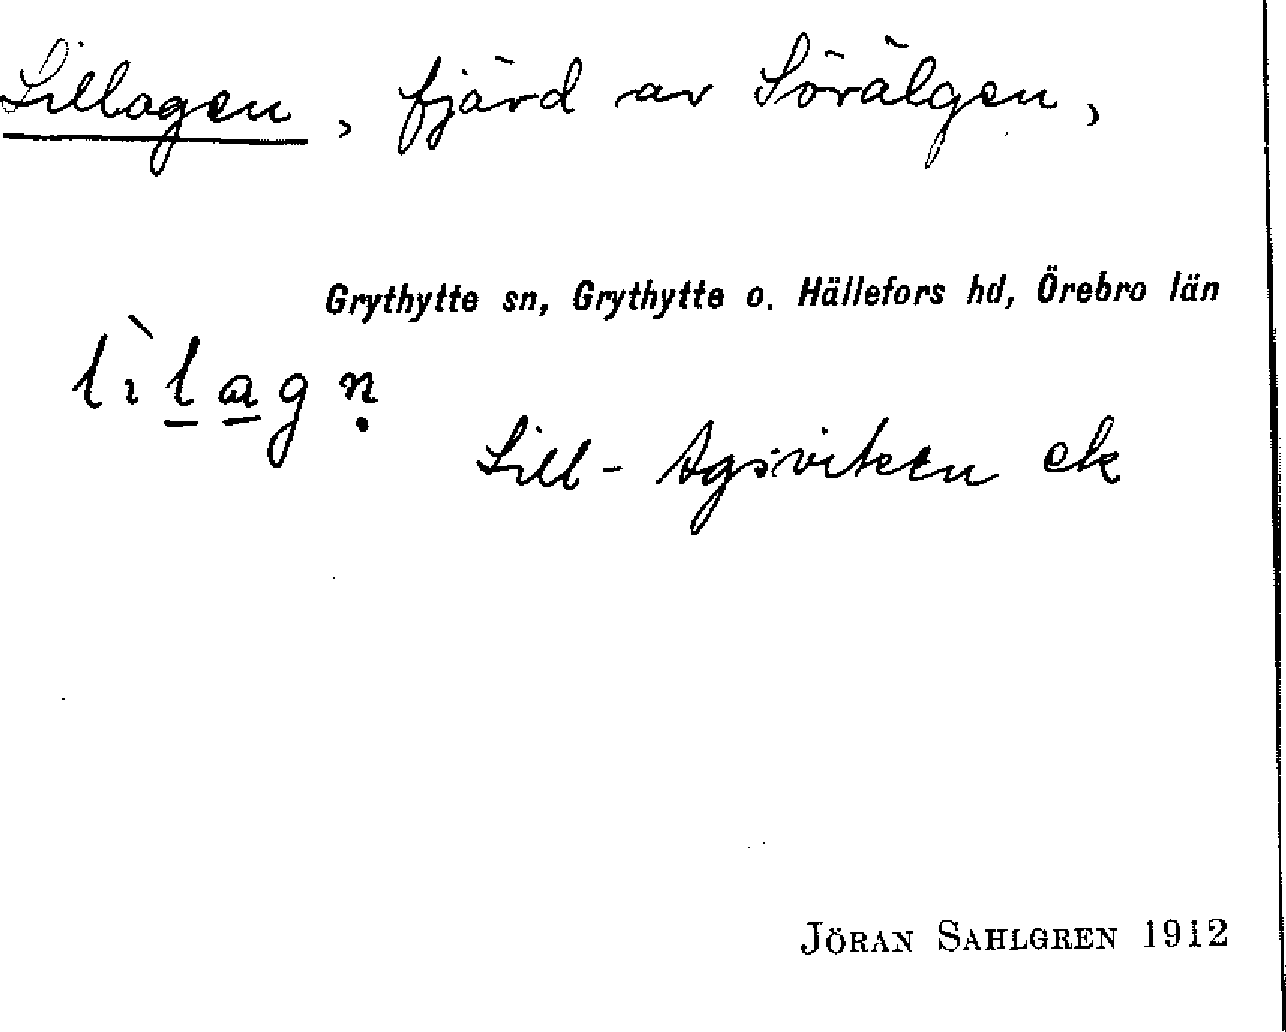 Lillagen, fjärd av Sörälgen,
Grythytte sn, Grythytte o. Hällefors hd, Örebro län
lìl̲a̲gṇ
Lill-Agsviken ek
JÖRAN SAHLGREN 1912